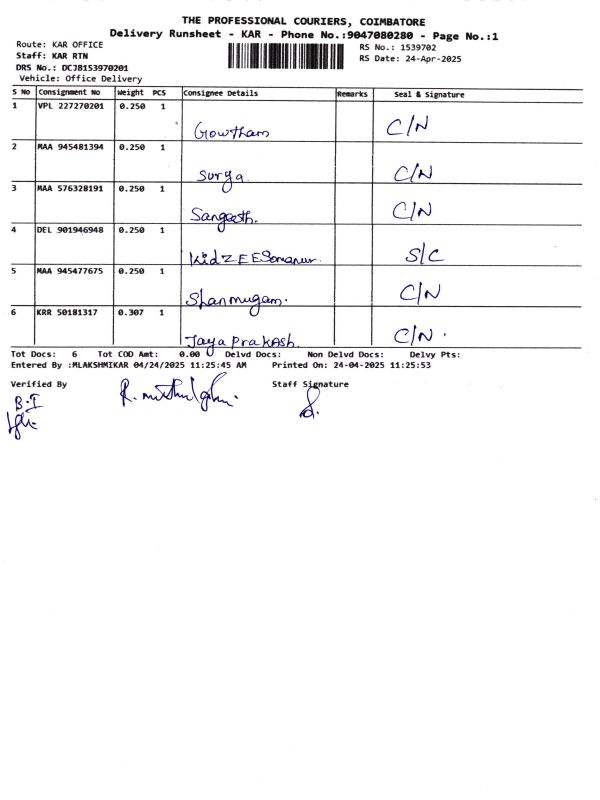 THE PROFESSIONAL COURIERS, COIMBATORE
Delivery Runsheet - KAR - Phone No.:9047080280 - Page No.:1
Route: KAR OFFICE
Staff: KAR RTN
DRS No.: DCJB153970201
Vehicle: Office Delivery
RS No.: 1539702
RS Date: 24-Apr-2025
S No Consignment No Weight PCS Consignee Details Remarks Seal & Signature
1 VPL 227270201 0.250 1 Gowtham C/N
2 MAA 945481394 0.250 1 Surya. C/N
3 MAA 576328191 0.250 1 Sangeeth. C/N
4 DEL 901946948 0.250 1 KidZEE Somanur. S/C
5 MAA 945477675 0.250 1 Shanmugam. C/N
6 KRR 50181317 0.307 1 Jaya Prakash. C/N.
Tot Docs: 6 Tot COD Amt: 0.00 Delvd Docs: Non Delvd Docs: Delvy Pts:
Entered By :MLAKSHMIKAR 04/24/2025 11:25:45 AM Printed On: 24-04-2025 11:25:53
Verified By Staff Signature